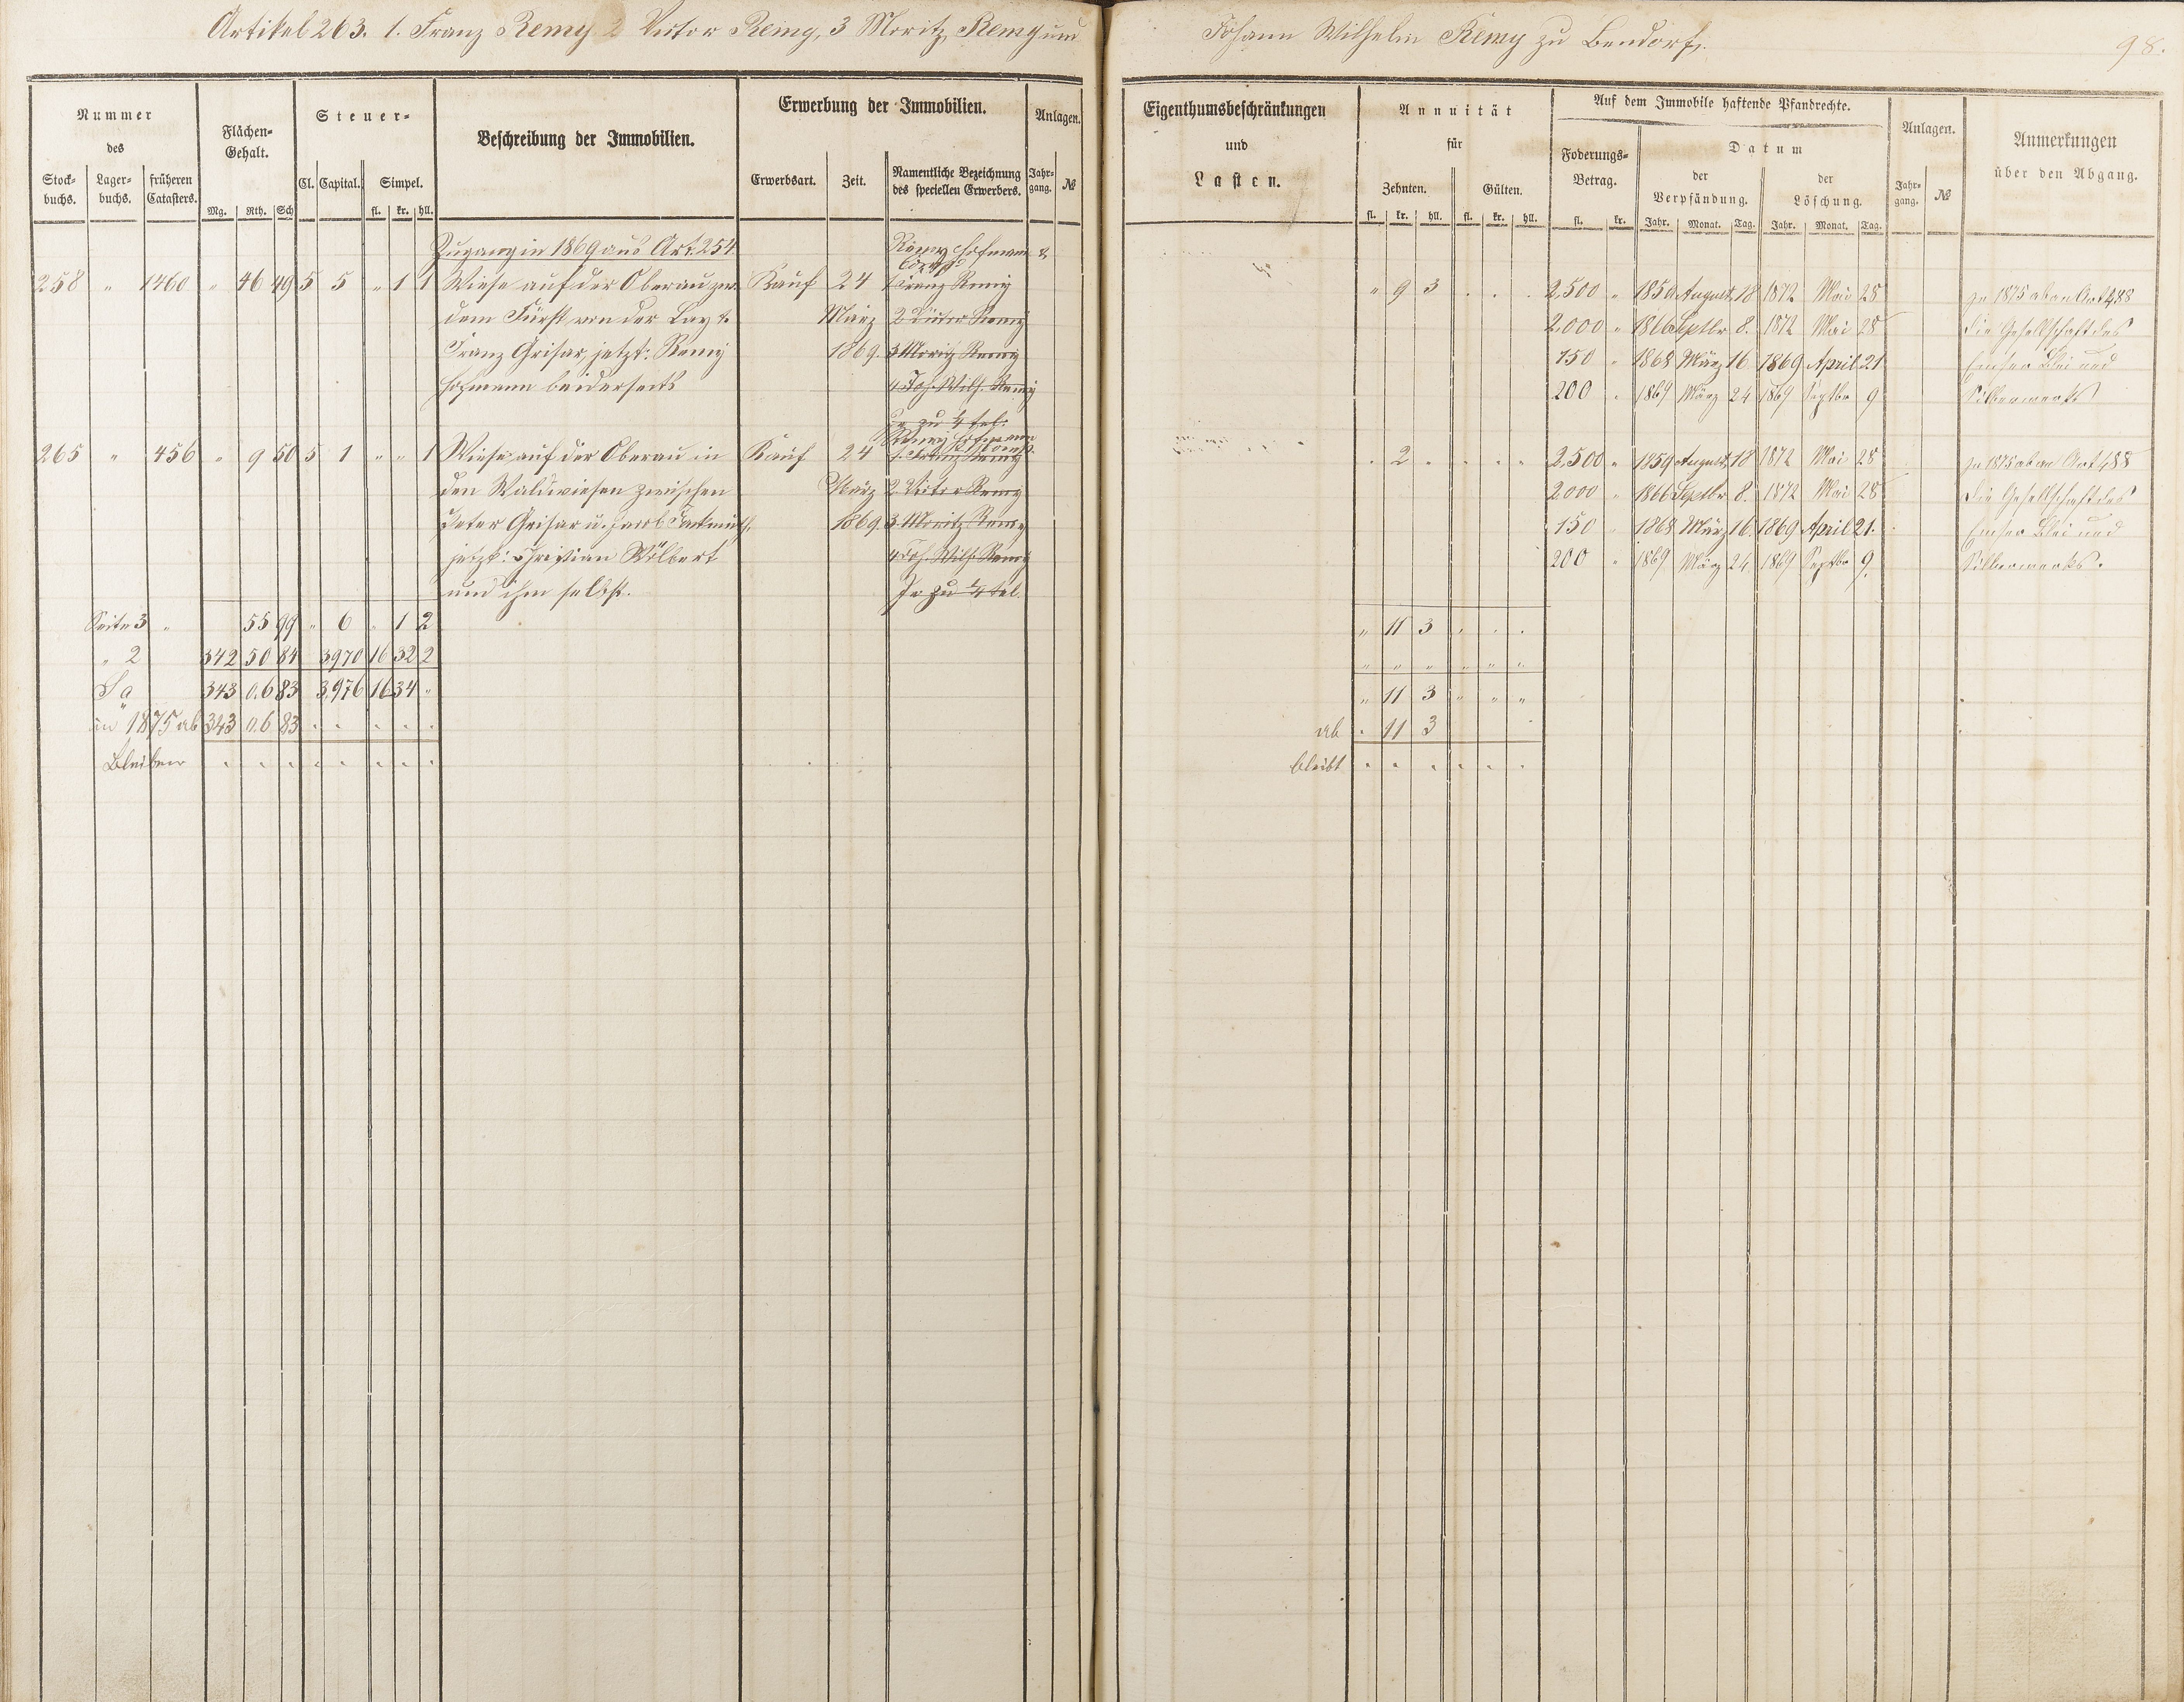 Artikel 263. 1. Franz Remy 2 Victor Remy, 3 Moritz Remy und
Johann Wilhelm Remy zu Bendorf.
98.
Nummer
des
Stock-
buchs.
Lager-
buchs.
früheren
Catasters.
Flächen-
Gehalt.
Mg. Rth. Sch
Steuer-
Cl. Capital. Simpel.
fl. kr. hll.
Beschreibung der Immobilien.
Erwerbung der Immobilien.
Erwerbsart. Zeit.
Namentliche Bezeichnung
des speciellen Erwerbers.
Anlagen.
Jahr-
gang.
№
Eigenthumsbeschränkungen
und
Lasten.
Annuität
für
Zehnten. Gülten.
fl. kr. hll. fl. kr. hll.
Auf dem Immobile haftende Pfandrechte.
Foderungs-
Betrag.
fl. kr.
Datum
der
Verpfändung.
Jahr. Monat. Tag.
der
Löschung.
Jahr. Monat. Tag.
Anlagen.
Jahr-
gang.
№
Anmerkungen
über den Abgang.
Zugang in 1869 aus Art. 254. Remy Hofmann &
258 " 1460 " 46 49 5 5 " 1 1 Wiese auf der Oberau zw. Kauf 24 1 Franz Remy " 9 3 . . . 2,500 " 1859 August 18 1872 Mai 28 In 1875 ab an Art 488
dem Fürst von der Lay u. März 2 Victor Remy 2.000 " 1866 Septbr 8. 1872 Mai 28 die Gesellschaft des
Franz Grisar, jetzt: Remy 1869. 3 Moritz Remy 150 " 1868 März 16 1869 April 21 Emser Blei und
Hofmann beiderseits 4 Joh. Wilh. Remy 200 " 1869 März 24 1869 Septbr 9 Silberwerks
Je zu 1/4 tel.
Remy Hofmann
265 " 456 " 9 50 5 1 " " 1 Wiese auf der Oberau in Kauf 24 1. Franz Remy . 2 . . . . 2,500 " 1859 August 18 1872 Mai 28 In 1875 ab an Art 488
den Waldwiesen zwischen März 2 Victor Remy 2000 " 1866 Septbr 8. 1872 Mai 28 die Gesellschaft des
Peter Grisar u. Jacob 1869. 3 Moritz Remy 150 " 1868 März 16. 1869 April 21. Emser Blei und
jetzt: Christian Wölbert 4 Joh. Wilh. Remy 200 " 1869 März 24 1869 Septbr 9. Silberwerks.
und ihm selbst. Je zu 1/4 tel.
Seite 3 " 55 99 " 6 " 1 2 " 11 3 . . .
" 2 342 50 84 3970 16 32 2 " " " " " "
Sa 343 0.6 83 3,976 16 34 " " 11 3 " " "
in 1875 ab 343 0.6 83 . . . . . ab . 11 3
Bleiben . . . . . . . . bleibt . . . . . .